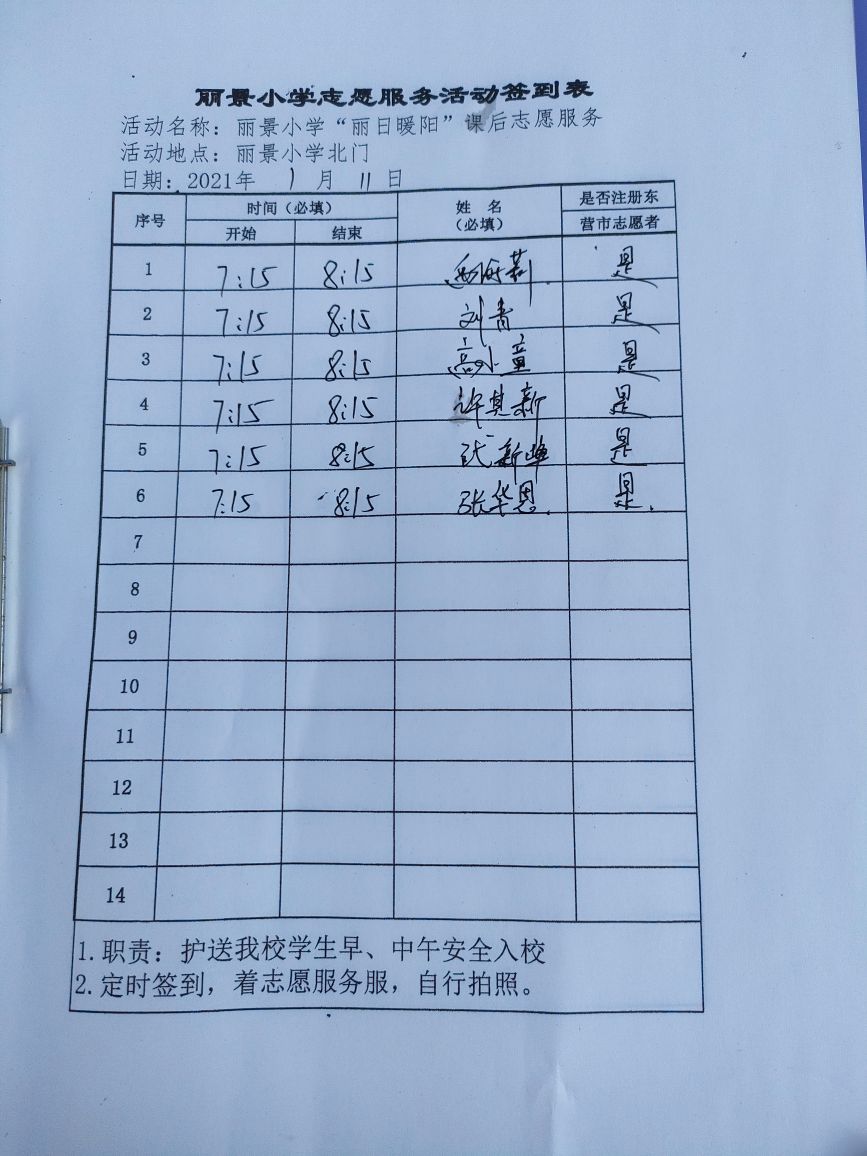 丽景小学志愿服务活动签到表
活动名称：丽景小学“丽日暖阳”课后志愿服务
活动地点：丽景小学北门
日期：2021年 1 月 11 日
序号 时间（必填） 姓 名 是否注册东
开始 结束 （必填） 营市志愿者
1 7:15 8:15 是
2 7:15 8:15 刘青 是
3 7:15 8:15 高小童 是
4 7:15 8:15 许其新 是
5 7:15 8:15 新峰 是
6 7:15 8:15 张华恩 是
7
8
9
10
11
12
13
14
1.职责：护送我校学生早、中午安全入校
2.定时签到，着志愿服务服，自行拍照。